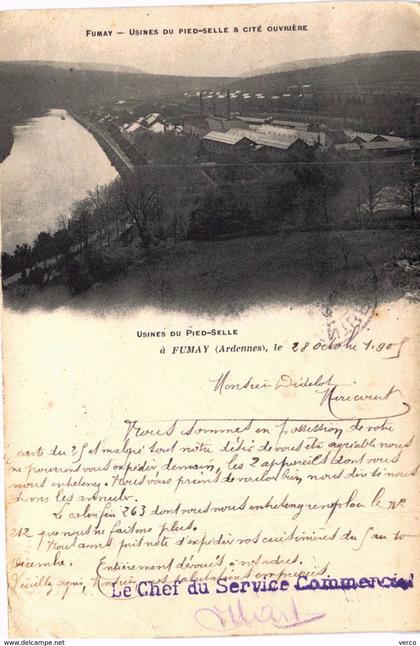 FUMAY — USINES DU PIED-SELLE & CITÉ OUVRIÈRE
USINES DU PIED-SELLE
à FUMAY (Ardennes), le 28 Octobre 1905
Monsieur Didelot
Mirecourt
Nous sommes en possession de votre
carte du 25 et malgré tout notre désir de vous être agréable nous
ne pourrons vous expédier, demain, les 2 appareils dont vous
nous Nous vous prions de vouloir bien, nous dire si nous
devons les annuler.
Le calorifère 263 dont vous nous remplace le No
212 que nous ne faisons plus.
Nous avons pris note d'expédier vos cuisinières du 5 au 10
Décembre. Entièrement dévoués à vos ordres.
Veuillez agréer, Monsieur, nos salutations empressées
Le Chef du Service Commercial